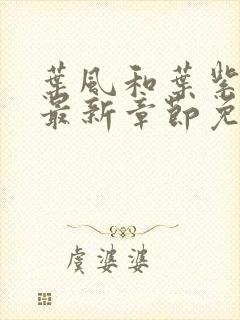 葉風和葉紫
最新章節免
虞婆婆